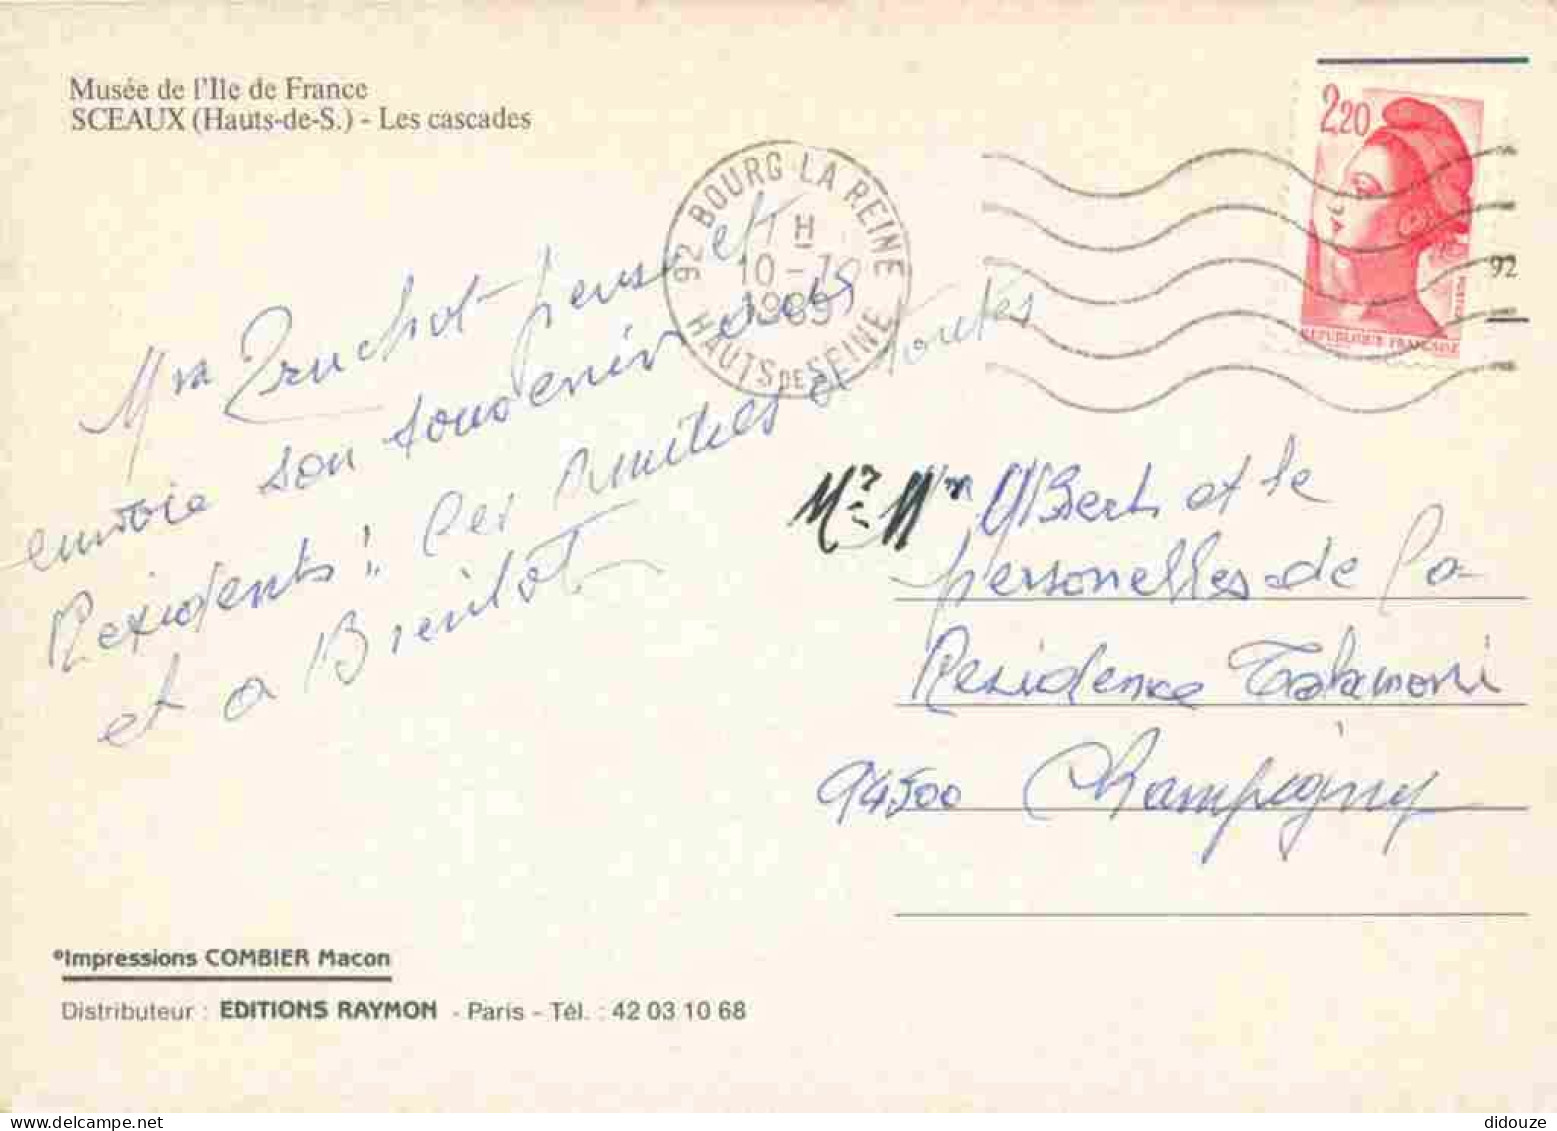 Musée de l'Ile de France
SCEAUX (Hauts-de-S.) - Les cascades
2,20
REPUBLIQUE FRANÇAISE
92
92 BOURG LA REINE
H
10-7
1989
HAUTS DE SEINE
Mm Truchot pense et
envoie son souvenir aux
Residents ! Ces Amitiés à toutes
et a Bientot.
Mr Mm Albert et le
personelles de la
Residence Talamoni
94500 Champigny
*Impressions COMBIER Macon
Distributeur : EDITIONS RAYMON - Paris - Tél. : 42 03 10 68
didouze